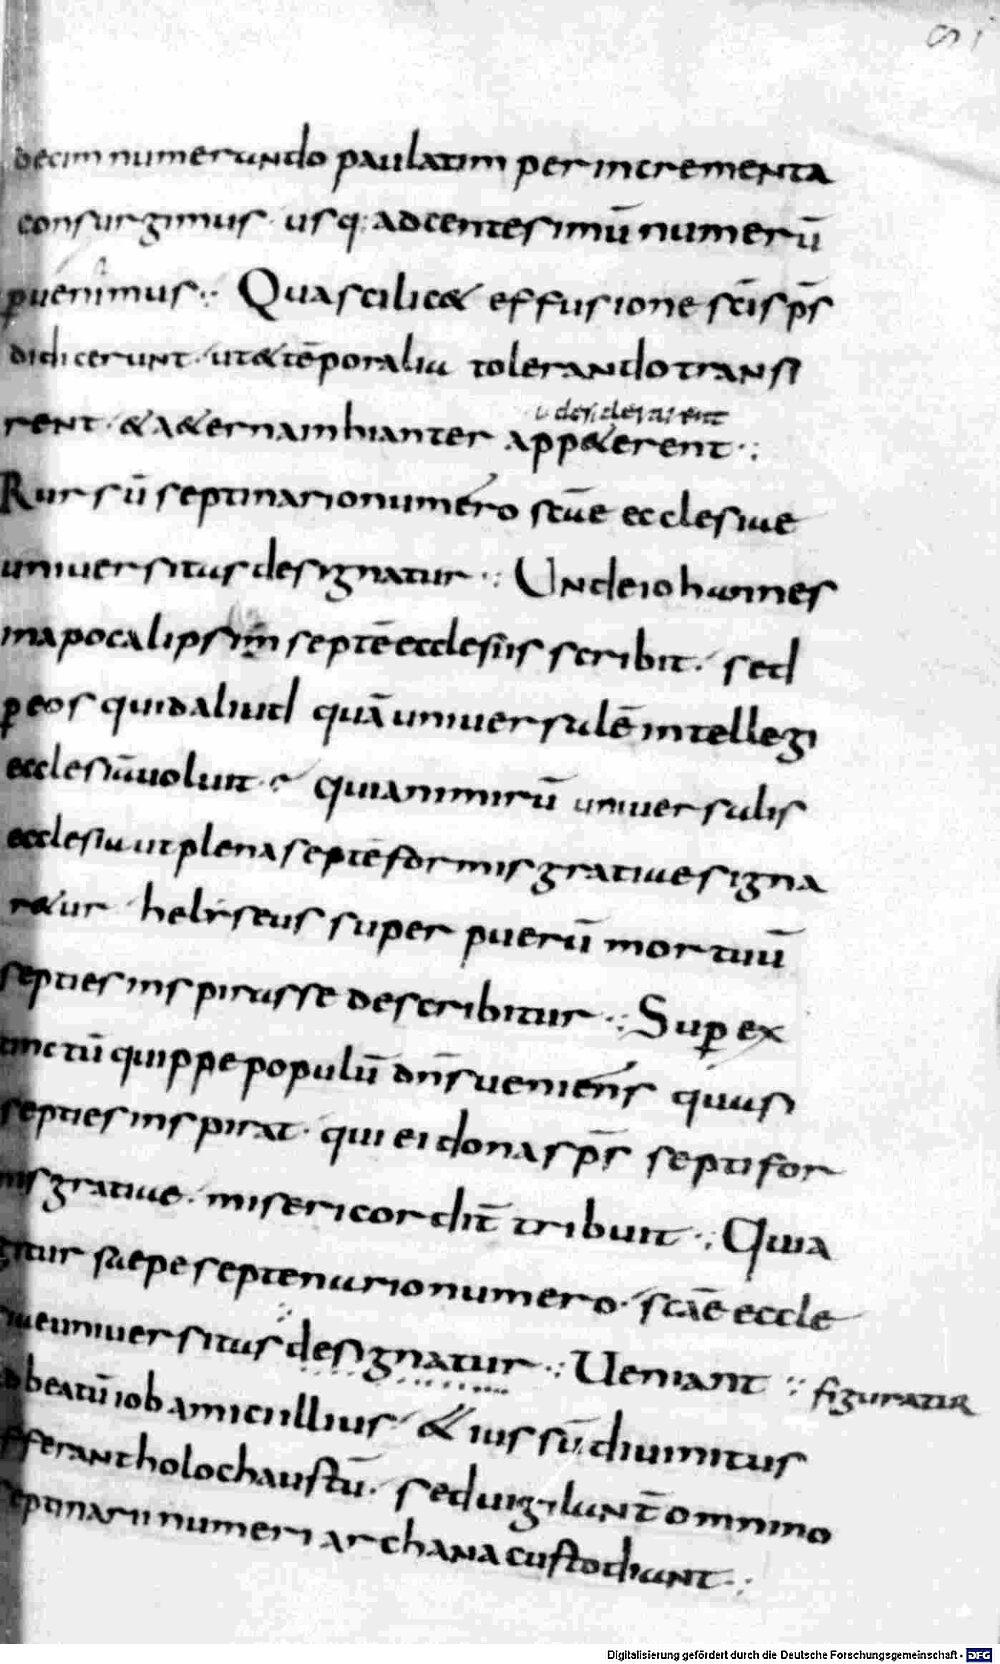 81
decim numerando paulatim per incrementa
consurgimus · usq: ad centesimū numerū
puenimus ·:· Qua scilic& effusione sc̄i sp̄s
didicerunt · ut & tēporalia tolerando transi
desiderarent
rent · & a&ernam hianter app&erent ·:
Rursū septinario numero sc̄ae ecclesiae
uniuersitas designatur ·: Unde iohannes
in apocalipsim septē ecclesiis scribit · sed
p eos quid aliud quā uniuersalē intellegi
ecclesiā uoluit · quia nimirū uniuersalis
ecclesia ut plena septēformis gratiae signa
r&ur heliseus super puerū mortuū
septies inspirasse describitur ·: Sup ex
tinctū quippe populū dn̄s ueniens quasi
septies inspirat · qui ei dona sp̄s septifor
mis gratiae · misericordit̄ tribuit ·: Quia
gitur saepe septenario numero · sc̄ae eccle
siae uniuersitas designatur ·: Ueniant ·: figuratur
d beatū iob amici illius · & eius sū diuinitus
fferant holochaustū · sed uigilant̄ omnino
septinarii numeri archana custodiant ·:
Digitalisierung gefördert durch die Deutsche Forschungsgemeinschaft - DFG